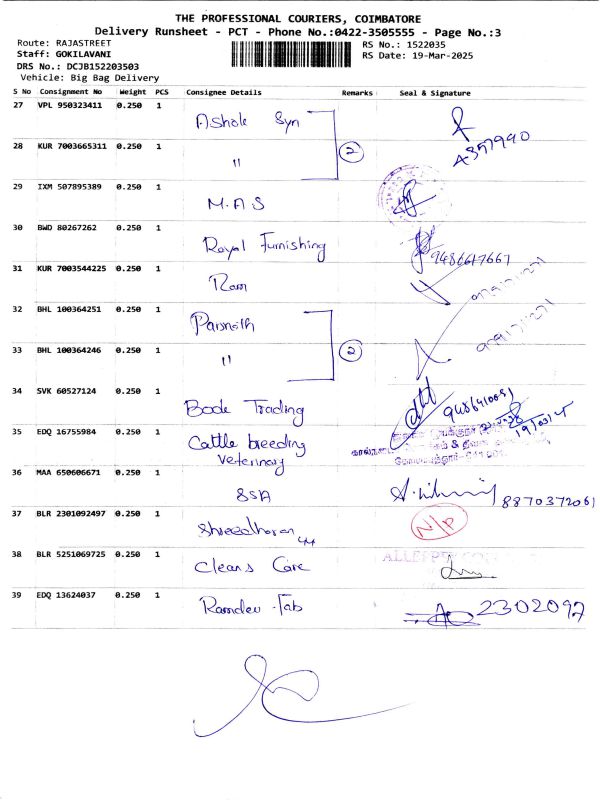 THE PROFESSIONAL COURIERS, COIMBATORE
Delivery Runsheet - PCT - Phone No.:0422-3505555 - Page No.:3
Route: RAJASTREET
RS No.: 1522035
Staff: GOKILAVANI
RS Date: 19-Mar-2025
DRS No.: DCJB152203503
Vehicle: Big Bag Delivery
S No Consignment No Weight PCS Consignee Details Remarks Seal & Signature
27 VPL 950323411 0.250 1 Ashok Syn
28 KUR 7003665311 0.250 1 " 2 A357990
29 IXM 507895389 0.250 1 M.A.S
30 BWD 80267262 0.250 1 Royal Furnishing 9486617667
31 KUR 7003544225 0.250 1 Ram
32 BHL 100364251 0.250 1
33 BHL 100364246 0.250 1 " 2
34 SVK 60527124 0.250 1 Trading
35 EDQ 16755984 0.250 1 Cattle breeding
Veterinary
36 MAA 650606671 0.250 1 SSA 8870372061
37 BLR 2301092497 0.250 1 Shreedharan N/P
38 BLR 5251069725 0.250 1 Cleans Care
39 EDQ 13624037 0.250 1 Ramdev Fab 2302092